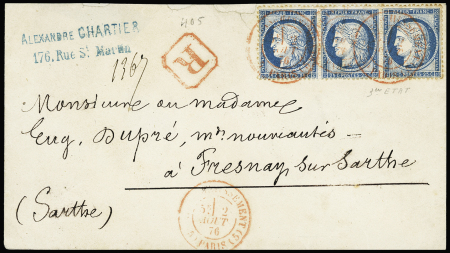 ALEXANDRE CHARTIER
176, Rue St Martin
405
R
1367
3me ETAT
Monsieur ou madame
Eug. Dupré, mds nouveautés –
à Fresnay sur Sarthe
(Sarthe)
2
AOUT
76
PARIS